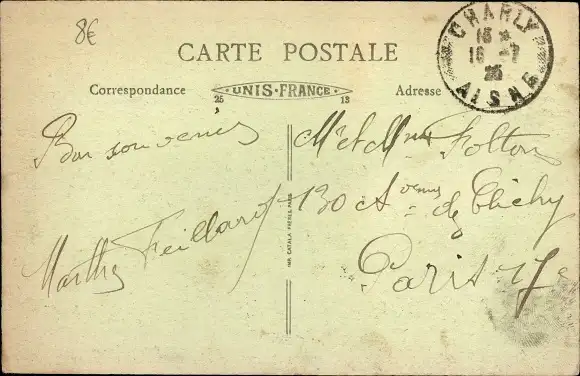 8€
CARTE POSTALE
Correspondance
UNIS-FRANCE
25 13
Adresse
CHARLY
AISNE
Bon souvenir
Marthe Feillard
Mr et Mme Folton
130 Avenue de Clichy
Paris 17e
IMP. CATALA FRÈRES, PARIS